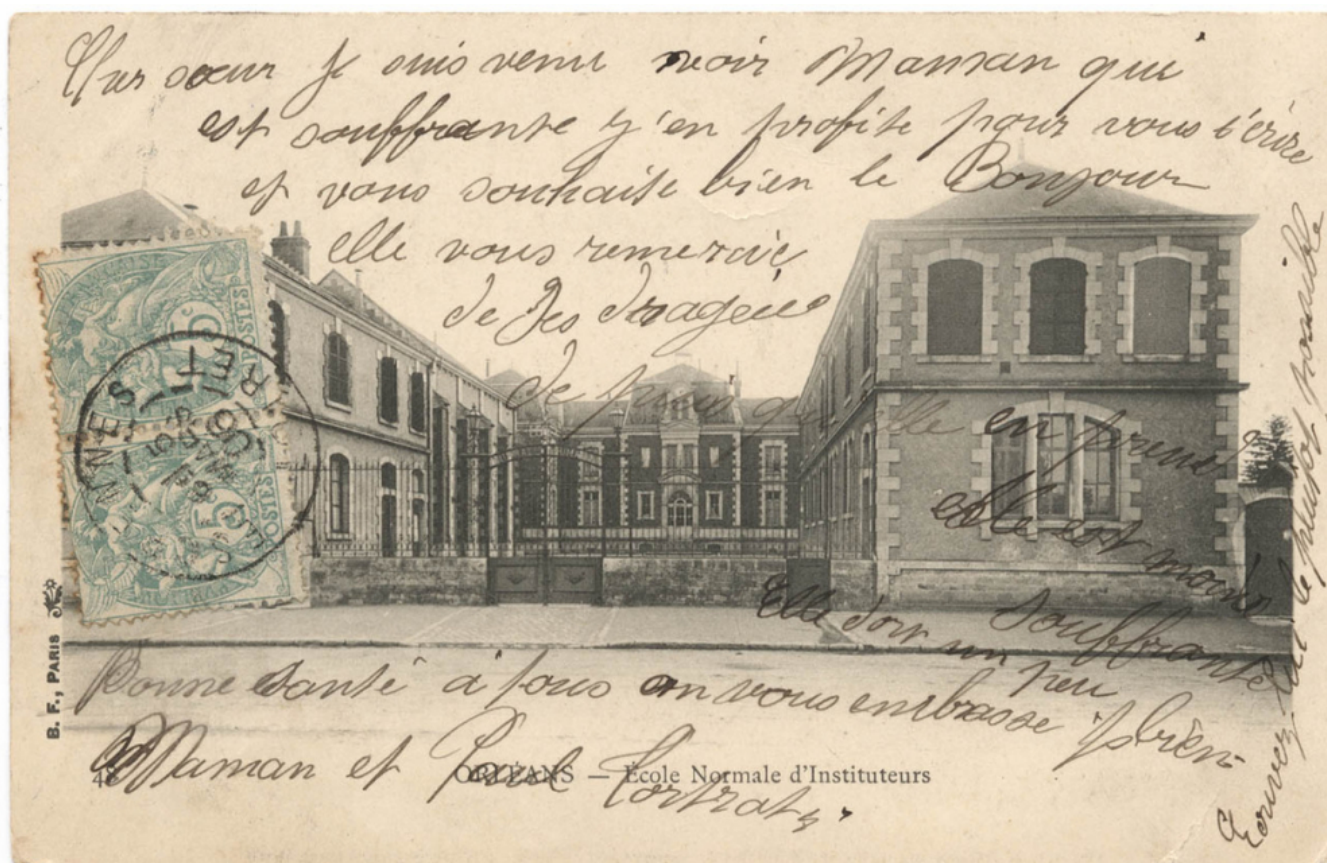 sœur je suis venu voir Maman qui
est souffrante j'en profite pour vous t'érire
et vous souhaite bien le Bonjour
elle vous remercie
de des dragées
elle en prend
elle est moins
souffrante
Elle dort un peu
Bonne santé à tous on vous embrasse bien
Maman et Paul
le plutot possible
48 ORLÉANS — École Normale d'Instituteurs
B. F., PARIS
POSTES
5
5
RET